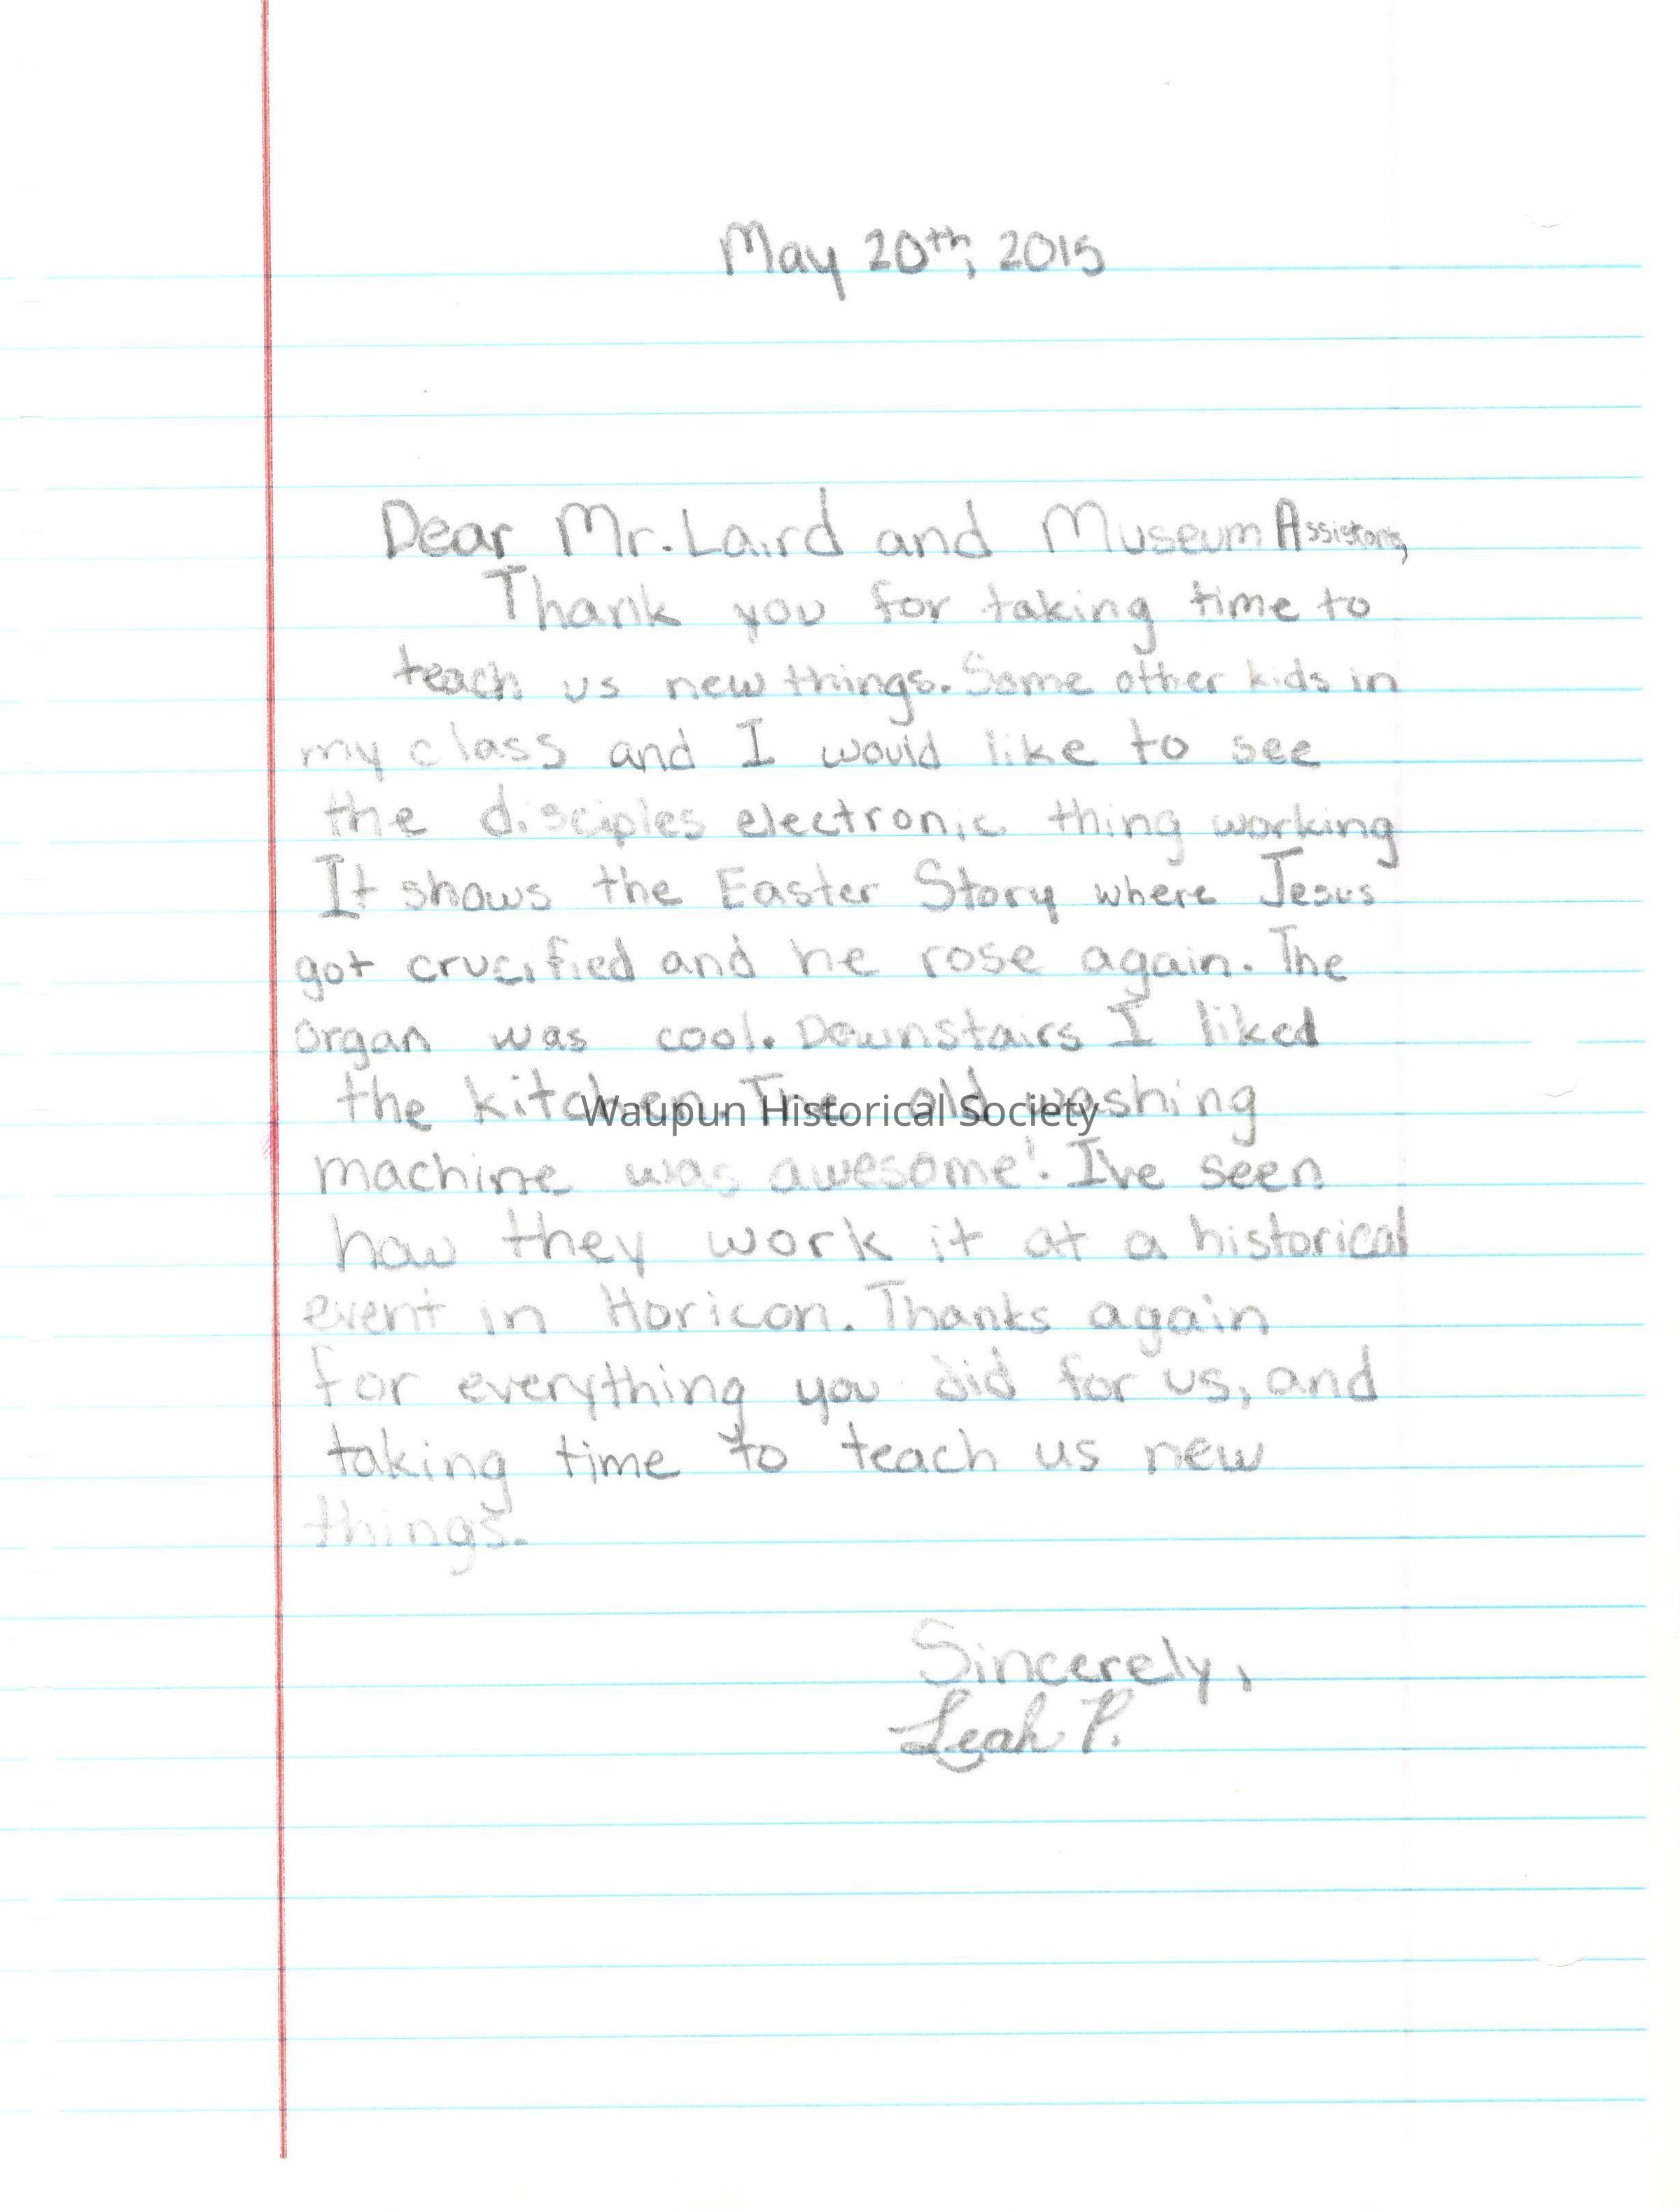 May 20th, 2015
Dear Mr. Laird and Museum Assistants,
Thank you for taking time to
teach us new things. Some other kids in
my class and I would like to see
the disciples electronic thing working
It shows the Easter Story where Jesus
got crucified and he rose again. The
organ was cool. Downstairs I liked
the kitchen. The old washing
Waupun Historical Society
machine was awesome! I've seen
how they work it at a historical
event in Horicon. Thanks again
for everything you did for us, and
taking time to teach us new
things.
Sincerely,
Leah P.